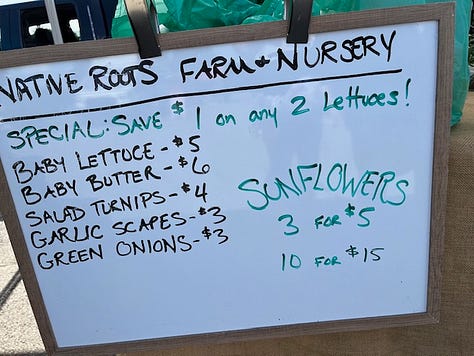 NATIVE ROOTS FARM + NURSERY
SPECIAL: SAVE $1 on any 2 Lettuces!
BABY LETTUCE - $5
BABY BUTTER - $6
SALAD TURNIPS - $4
GARLIC SCAPES - $3
GREEN ONIONS - $3
SUNFLOWERS
3 FOR $5
10 FOR $15